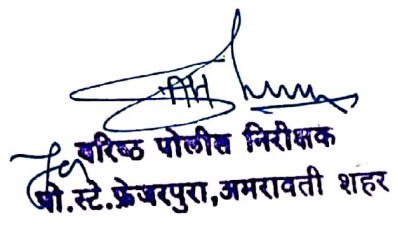 For वरिष्ठ पोलीस निरीक्षक
पो.स्टे.फ्रेजरपुरा,अमरावती शहर